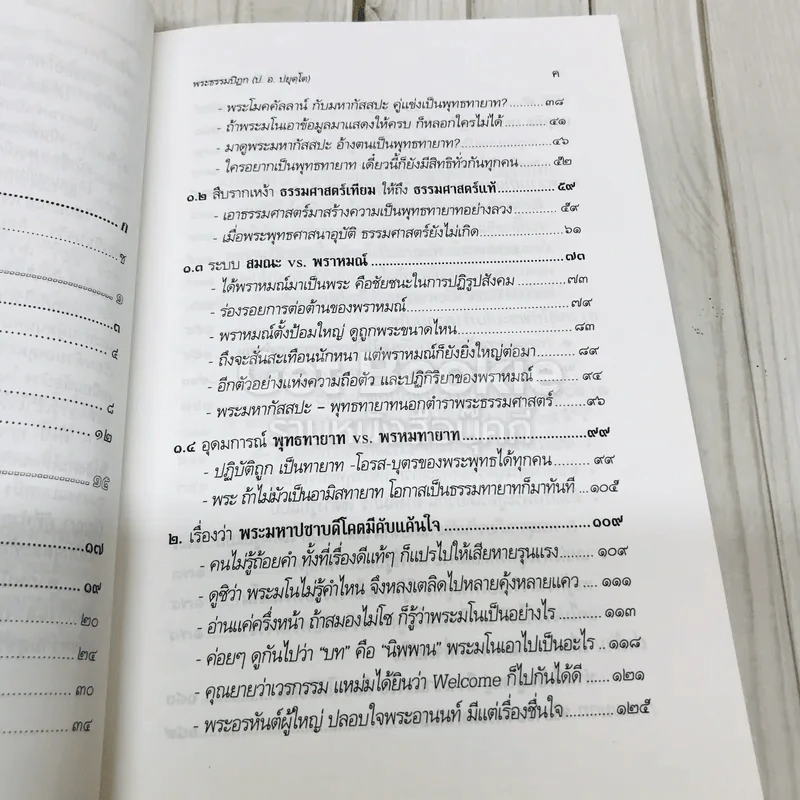 พระธรรมปิฎก (ป. อ. ปยุตฺโต) ค
- พระโมคคัลลาน์ กับมหากัสสปะ คู่แข่งเป็นพุทธทายาท?..........๓๘
- ถ้าพระมโนเอาข้อมูลมาแสดงให้ครบ ก็หลอกใครไม่ได้..........๔๑
- มาดูพระมหากัสสปะ อ้างตนเป็นพุทธทายาท?..........๔๖
- ใครอยากเป็นพุทธทายาท เดี๋ยวนี้ก็ยังมีสิทธิทั่วกันทุกคน..........๕๒
๑.๒ สืบรากเหง้า ธรรมศาสตร์เทียม ให้ถึง ธรรมศาสตร์แท้..........๕๙
- เอาธรรมศาสตร์มาสร้างความเป็นพุทธทายาทอย่างลวง..........๕๙
- เมื่อพระพุทธศาสนาอุบัติ ธรรมศาสตร์ยังไม่เกิด..........๖๑
๑.๓ ระบบ สมณะ vs. พราหมณ์..........๗๓
- ได้พราหมณ์มาเป็นพระ คือชัยชนะในการปฏิรูปสังคม..........๗๓
- ร่องรอยการต่อต้านของพราหมณ์..........๗๙
- พราหมณ์ตั้งป้อมใหญ่ ดูถูกพระขนาดไหน..........๘๓
- ถึงจะสั่นสะเทือนนักหนา แต่พราหมณ์ก็ยังยิ่งใหญ่ต่อมา..........๘๙
- อีกตัวอย่างแห่งความถือตัว และปฏิกิริยาของพราหมณ์..........๙๔
- พระมหากัสสปะ – พุทธทายาทนอกตำราพระธรรมศาสตร์..........๙๖
๑.๔ อุดมการณ์ พุทธทายาท vs. พรหมทายาท..........๙๙
- ปฏิบัติถูก เป็นทายาท -โอรส-บุตรของพระพุทธได้ทุกคน..........๙๙
- พระ ถ้าไม่มัวเป็นอามิสทายาท โอกาสเป็นธรรมทายาทก็มาทันที ...๑๐๕
๒. เรื่องว่า พระมหาปชาบดีโคตมีคับแค้นใจ..........๑๐๙
- คนไม่รู้ถ้อยคำ ทั้งที่เรื่องดีแท้ๆ ก็แปรไปให้เสียหายรุนแรง.......... ๑๐๙
- ดูซิว่า พระมโนไม่รู้คำไหน จึงหลงเตลิดไปหลายคุ้งหลายแคว .... ๑๑๑
- อ่านแค่ครึ่งหน้า ถ้าสมองไม่โซ ก็รู้ว่าพระมโนเป็นอย่างไร .......... ๑๑๓
- ค่อยๆ ดูกันไปว่า “บท” คือ “นิพพาน” พระมโนเอาไปเป็นอะไร .. ๑๑๘
- คุณยายว่าเวรกรรม แหม่มได้ยินว่า Welcome ก็ไปกันได้ดี ...... ๑๒๑
- พระอรหันต์ผู้ใหญ่ ปลอบใจพระอานนท์ มีแต่เรื่องชื่นใจ..........๑๒๕
ฦ
ซ
๑
๓
๔
๘
๑๒
๑๕
๑๗
๑๙
๒๐
๒๔
๓๐
๓๔